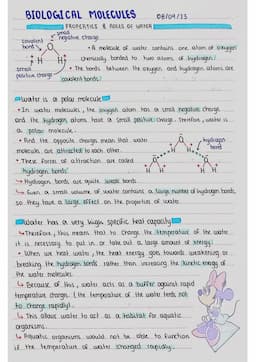 BIOLOGICAL MOLECULES 08/09/23
PROPERTIES & ROLES OF WATER
covalent bond
small negative charge
O
H H
small positive charge
• A molecule of water contains one atom of oxygen
chemically bonded to two atoms of hydrogen.
• The bonds between the oxygen and hydrogen atoms are
covalent bonds.
Water is a polar molecule
• In water molecules, the oxygen atom has a small negative charge
and the hydrogen atoms have a small positive charge. Therefore, water is
a polar molecule.
• And the opposite charges mean that water
molecules are attracted to each other.
• These forces of attraction are called
hydrogen bonds
hydrogen bond
↳ Hydrogen bonds are quite weak bonds
↳ Even a small volume of water contains a large number of hydrogen bonds,
so they have a large effect on the properties of water.
Water has a very high specific heat capacity
↳ Therefore, this means that to change the temperature of the water
it is necessary to put in or take out a large amount of energy.
• When we heat water, the heat energy goes towards weakening or
breaking the hydrogen bonds rather than increasing the kinetic energy of
the water molecules.
↳ Because of this, water acts as a buffer against rapid
temperature change. (the temperature of the water tends not
to change rapidly).
↳ This allows water to act as a habitat for aquatic
organisms.
↳ Aquatic organisms would not be able to function
if the temperature of water changed rapidly.